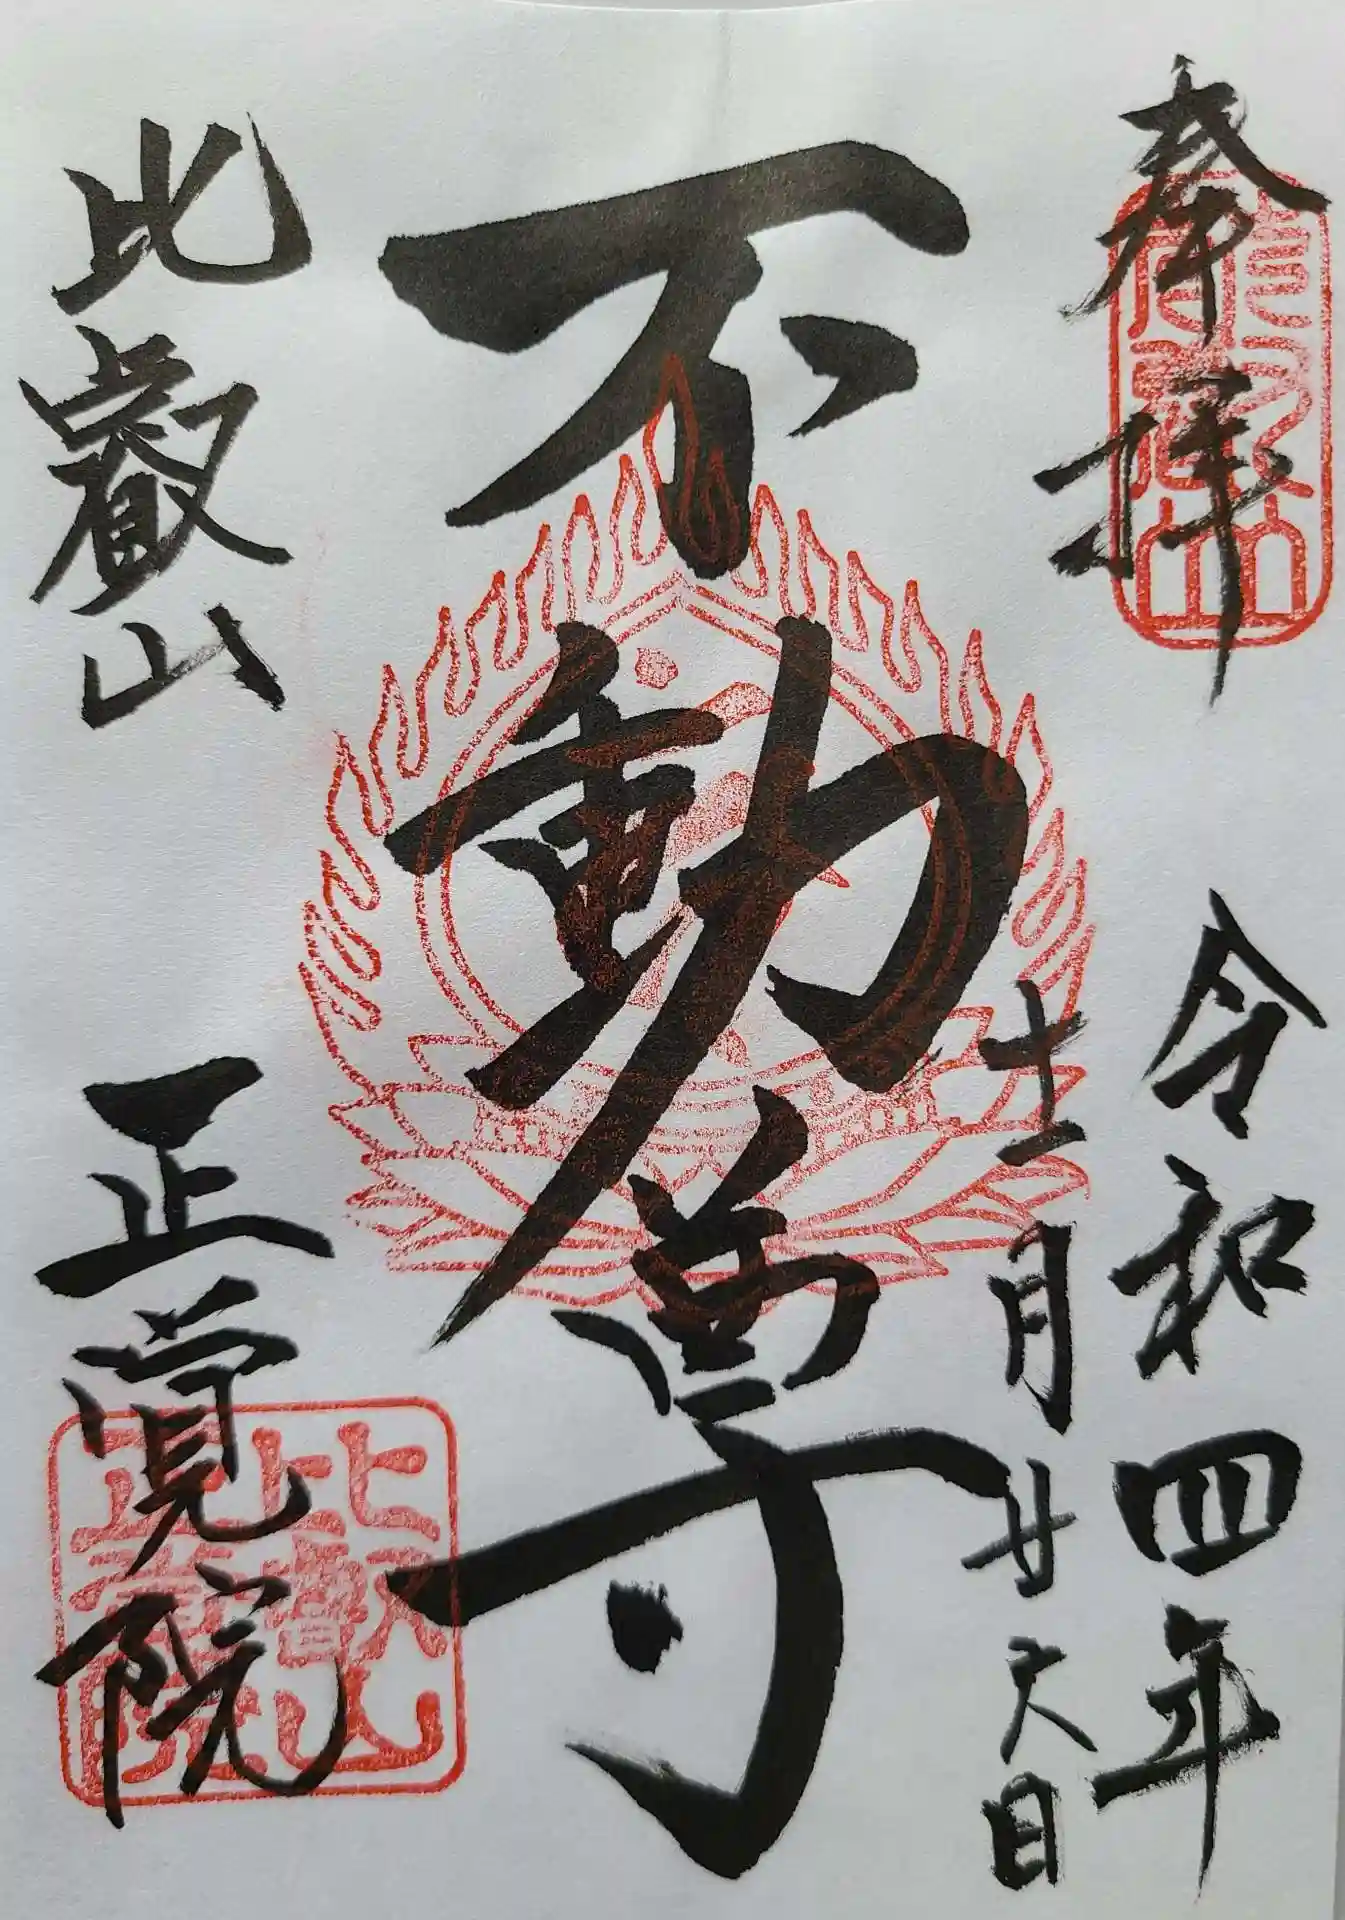 奉拝
令和四年
十一月廿六日
不動尊
比叡山
正覚院
比叡山
正覚院